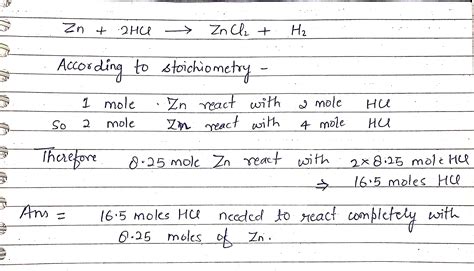 Zn + 2HCl → ZnCl₂ + H₂
According to stoichiometry -
1 mole Zn react with 2 mole HCl
So 2 mole Zn react with 4 mole HCl
Therefore 8.25 mole Zn react with 2×8.25 mole HCl
⇒ 16.5 moles HCl
Ans = 16.5 moles HCl needed to react completely with
8.25 moles of Zn.